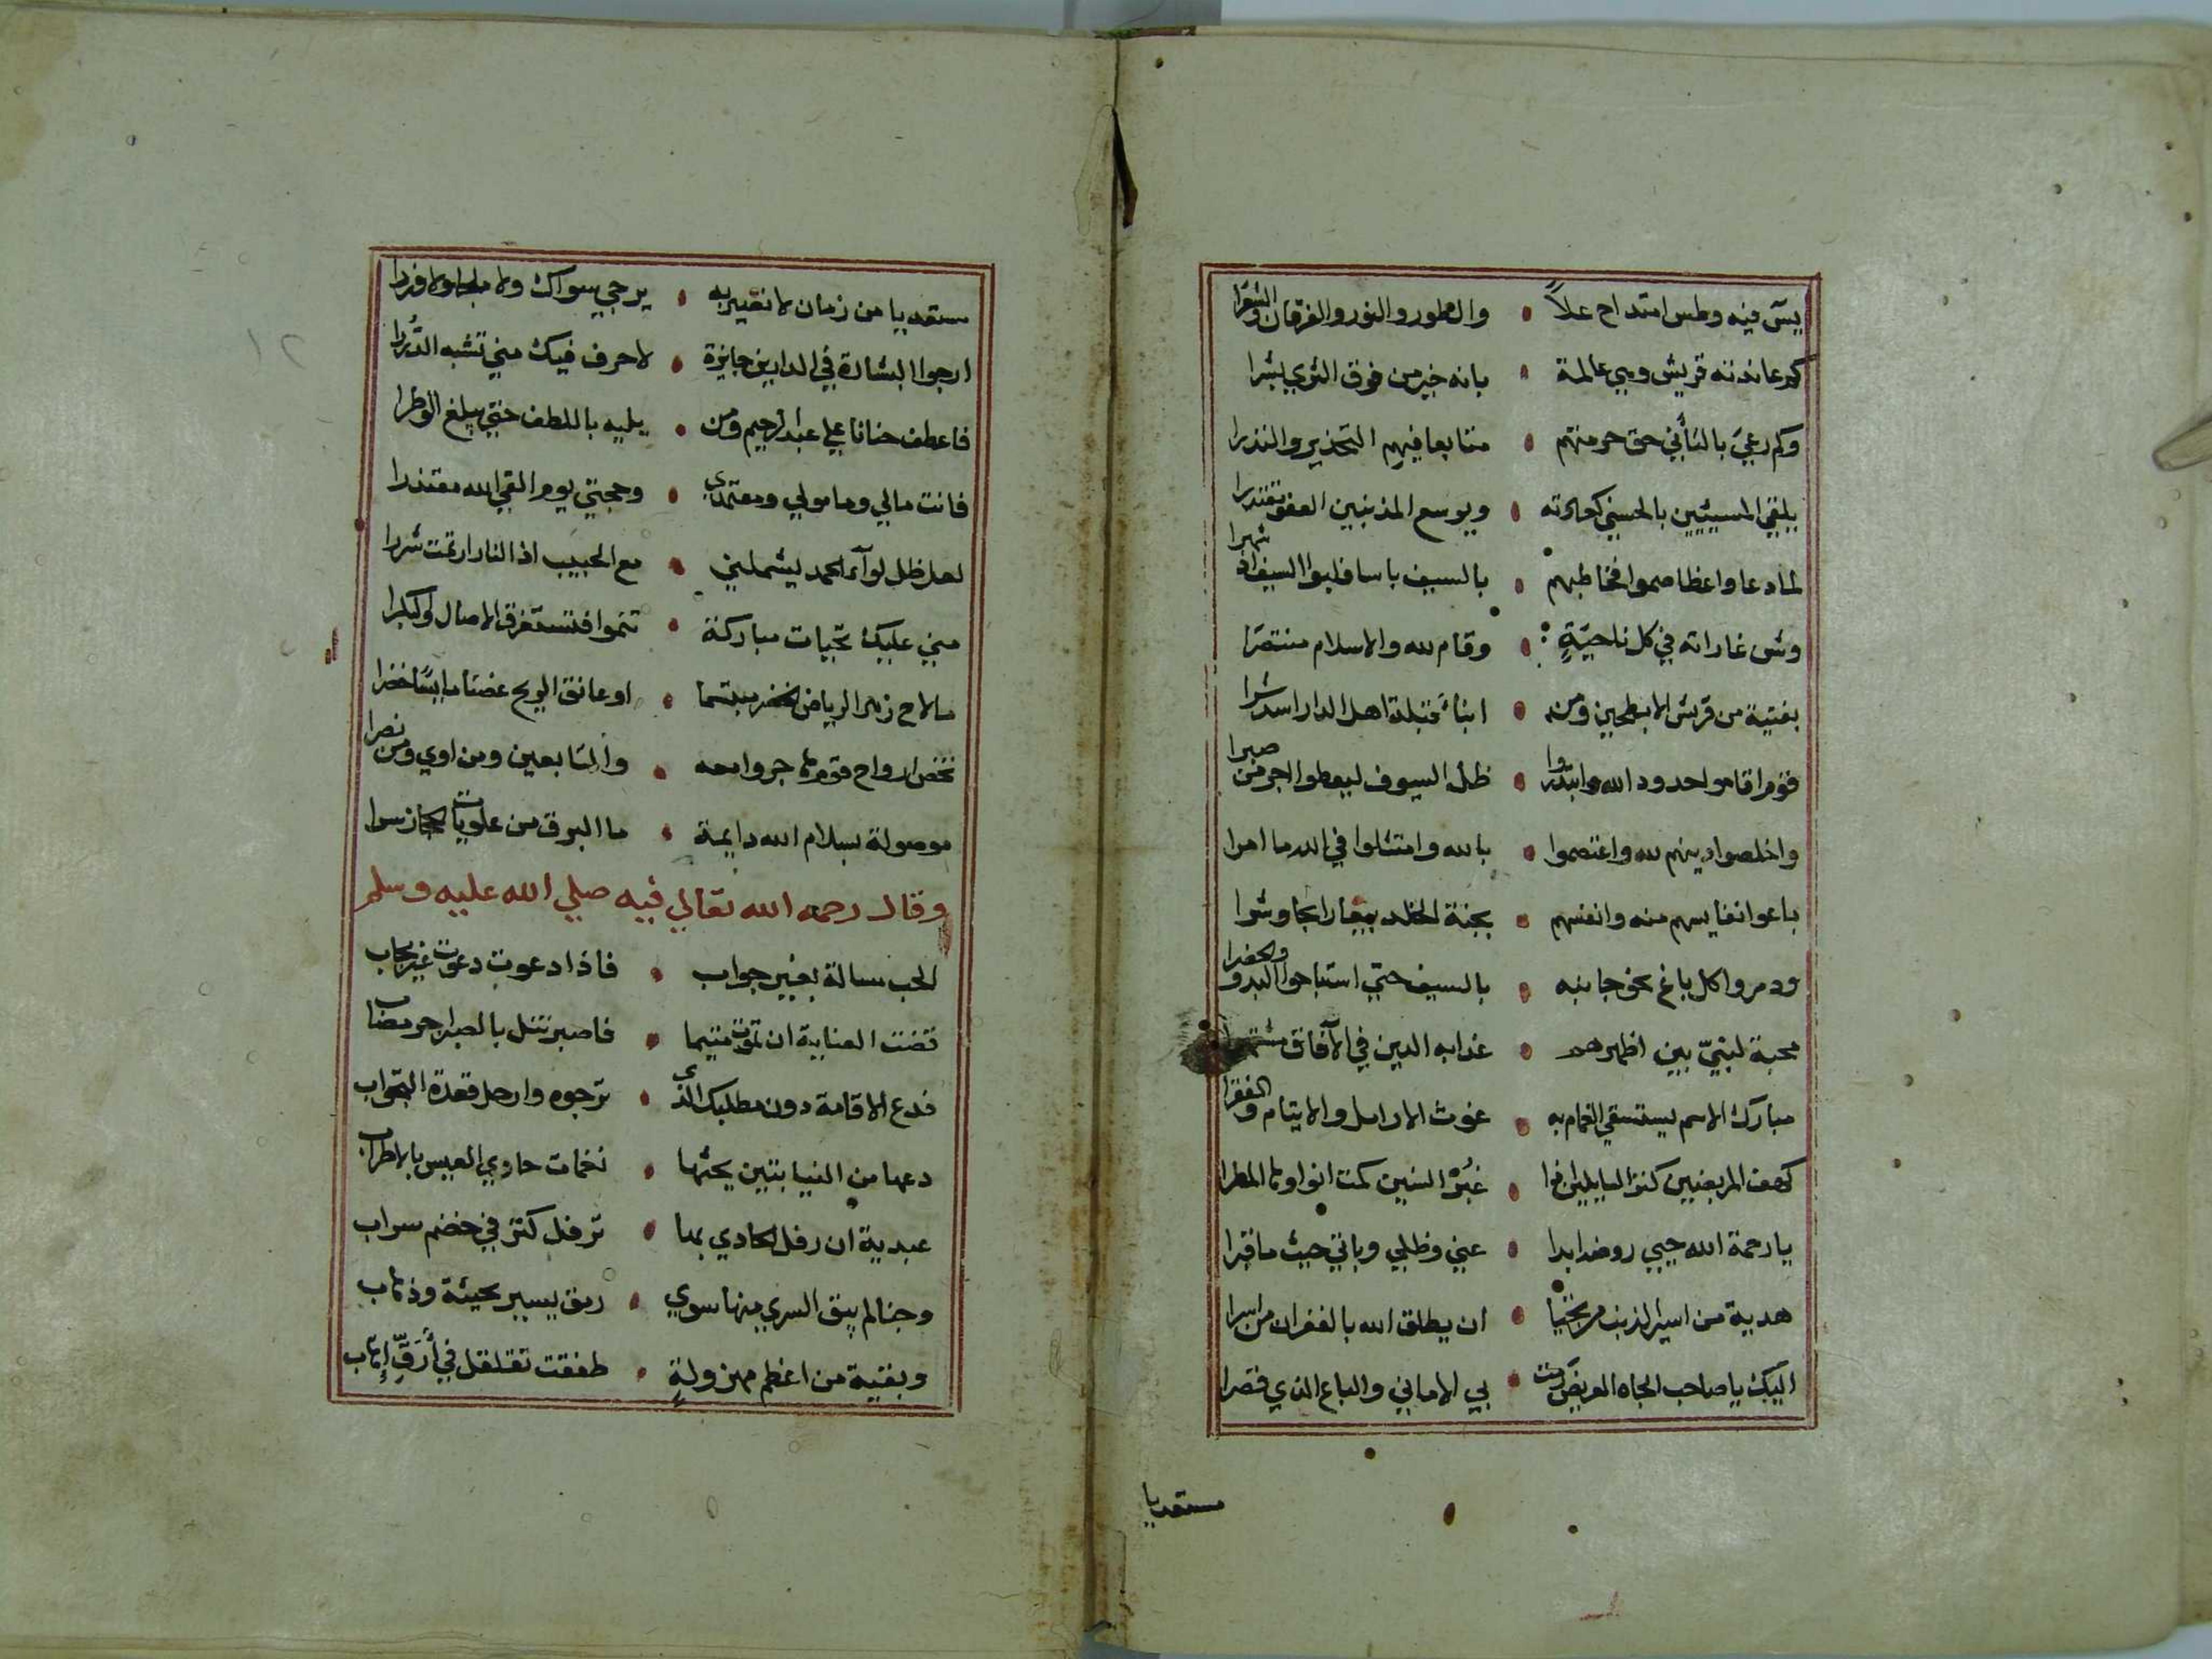 يس فيه وطس امتداح علاً • والطور والنور والفرقان والشعرا
كم عاندته قريش وهي عالمة • بانه خير من فوق الثري بشرا
وكم رعي بالتأني حق حرمتهم • متابعا فيهم التحذير والنذرا
يلقي المسيئين بالحسني كعادته • ويوسع المذنبين العفو مقتدرا
لما دعا واعظا صموا فخاطبهم • بالسيف باسا فلبوا السيف اذ شهرا
وشن غاراته في كل ناحيةٍ • وقام لله والاسلام منتصرا
بفتية من قريش الابطحين ومن • ابناء قيلة اهل الدار اسد شرا
قوم اقاموا حدود الله وابتدروا • ظل السيوف ليعطوا اجر من صبرا
واخلصوا دينهم لله واعتصموا • بالله وامتثلوا في الله ما امرا
باعوا نفايسهم منه وانفسهم • بجنة الخلد بيعا رابحا وشرا
ودمروا كل باغ بحق جانبه • بالسيف حتي استباحوا البدو والحضرا
محبة لنبيّ بين اظهرهم • غدا به الدين في الآفاق مشتهرا
مبارك الاسم يستسقي الغمام به • غوث الارامل والايتام والفقرا
كهف المريضين كنز السايلين اذا • غبرُ السنين كمت انواوها المطرا
يا رحمة الله حيي روضه ابدا • عني وظلي وباتي حيث ما قبرا
هدية من اسير الذنب مرتجيا • ان يطلق الله بالغفران من اسرا
اليك يا صاحب الجاه العريض رنت • بي الاماني والباع الذي قصرا
مستعديا
مستعديا من زمان لا نغير به • يرجي سواك ولا ملجا ولا وزرا
ارجوا البشارة في الدارين جايزة • لاحرف فيك مني تشبه الدُّررا
فاعطف حنانا علي عبد الرحيم ومن • يليه باللطف حتي يبلغ الوطرا
فانت مالي ومامولي ومعتمدي • وحجتي يوم القي الله معتذرا
لعل ظل لوآء الحمد يشملني • مع الحبيب اذا النار ارتمت شررا
مني عليك تحيات مباركة • تنموا فتستغرق الاصال والبكرا
ما لاح زهر الرياض الخضر مبتسما • او عانق الريح غصنا مايسا خضرا
تخص ارواح قوم هاجروا معه • والتابعين ومن اوي ومن نصرا
موصولة بسلام الله دايمة • ما البرق من علويات الحجاز سرا
وقال رحمه الله تعالي فيه صلي الله عليه وسلم
الحب مسالة بغير جواب • فاذا دعوت دعوت غير مجاب
قضت الصبابة ان تموت متيما • فاصبر تنل بالصبر اجر مصاب
فدع الاقامة دون مطلبك الذي • ترجوه وارحل قعدة التجواب
دعها من النيابتين يحثها • نغمات حاوي العيس بالاطراب
عبدية ان رفل الحادي بها • ترفل كتر في خضم سراب
وجنا لم يبق السري منها سوي • رمق يسير بجيئة وذهاب
وبقية من اعظم مهزولةٍ • طفقت تقلقل في أَرَقِّ إِهاب